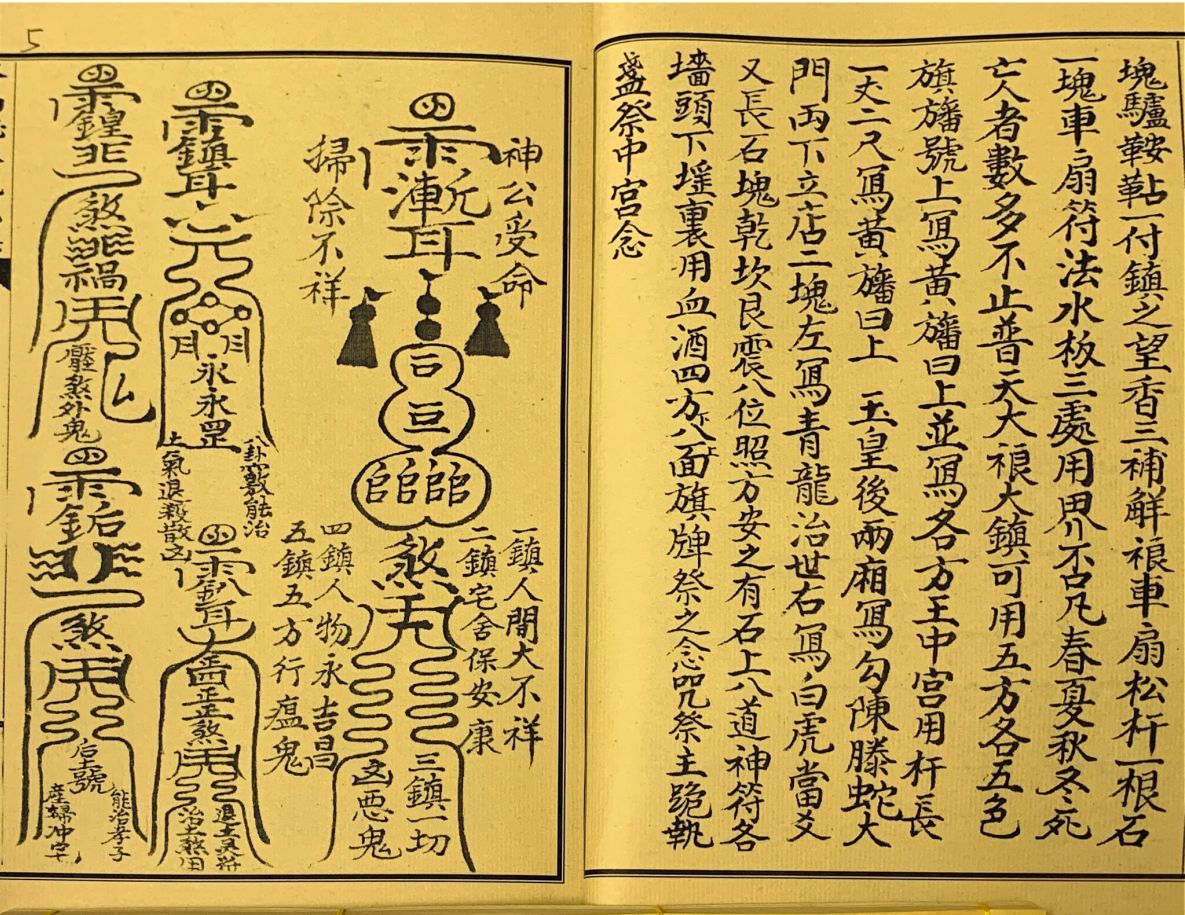 塊驢鞍鞊一付鎮之望香三補解禳車扇松杆一根石
一塊車扇符法水板三處用畀不吕凡春夏秋冬死
亡人者數多不止普天大禳大鎮可用五方各五色
旗旛號上冩黄旛曰上並冩各方王中宫用杆長
一丈二尺冩黄旛曰上 玉皇後兩廂冩勾陳滕蛇大
門両下立店二塊左冩青龍治世右冩白虎當爻
又長石塊乾坎艮震八位照方安之有石上八道神符各
墻頭下埋裏用血酒四方八面旗牌祭之念咒祭主跪執
盞祭中宫念
神公受命
漸耳
煞
掃除不祥
一鎮人間大不祥
二鎮宅舍保安康
三鎮一切
凶悪鬼
四鎮人物永吉昌
五鎮五方行瘟鬼
鎮耳
永永罡
八卦窍數能治
上氣退殺散凶
耳
正正煞
治土煞用
鍠非
煞
禍
煞外鬼
鉛
煞
后土號
能治孝子
産婦冲宅
5